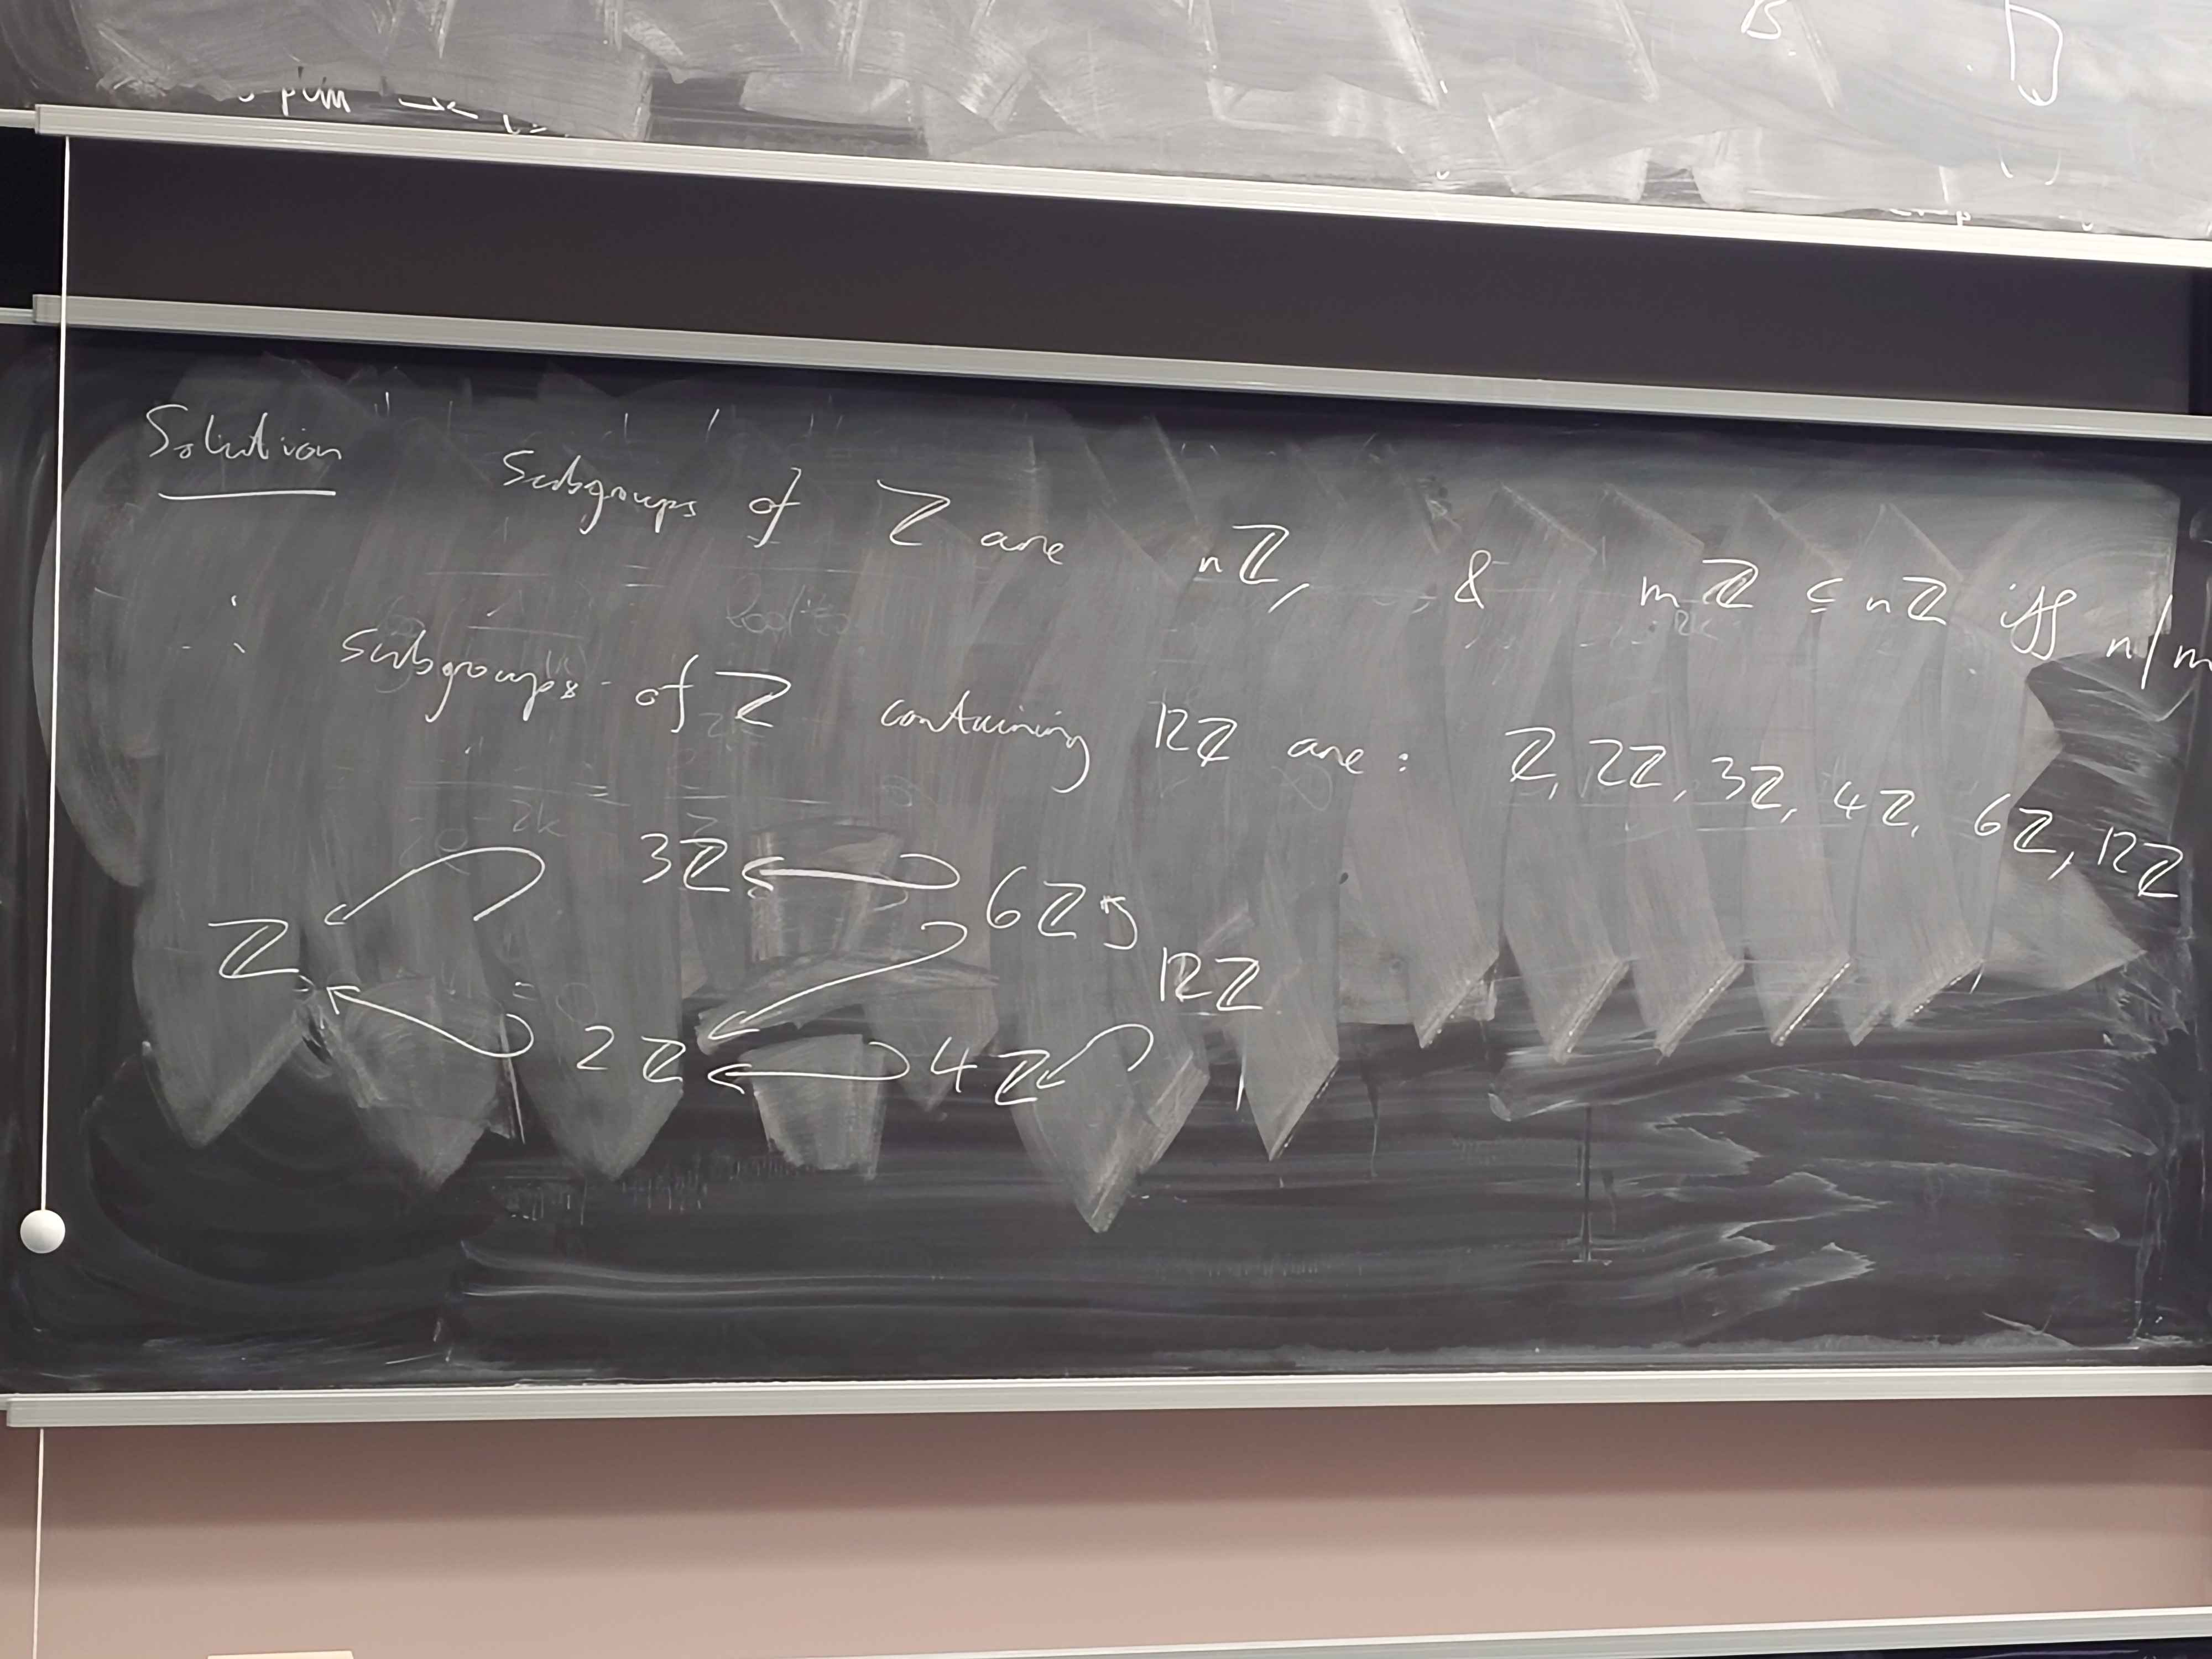 Solution Subgroups of ℤ are nℤ, & mℤ ⊆ nℤ iff n|m
∴ subgroups of ℤ containing 12ℤ are: ℤ, 2ℤ, 3ℤ, 4ℤ, 6ℤ, 12ℤ
3ℤ ↩ 6ℤ
ℤ 12ℤ
2ℤ ↩ 4ℤ